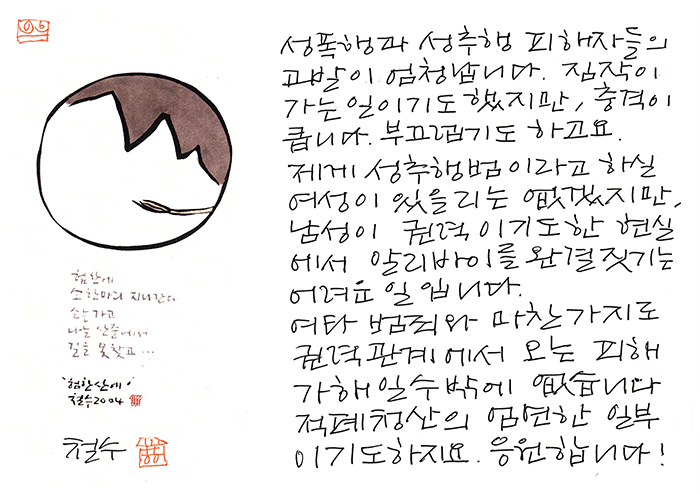 성폭행과 성추행 피해자들의
고발이 엄청납니다. 짐작이
가는 일이기도 했지만, 충격이
큽니다. 부끄럽기도 하고요.
제게 성추행범이라고 하실
여성이 있을리는 없겠지만,
남성이 권력이기도한 현실
에서 알리바이를 완결짓기는
어려운 일입니다.
여타 범죄와 마찬가지로
권력관계에서 오는 피해
가해일수밖에 없습니다
적폐청산의 엄연한 일부
이기도하지요. 응원합니다!
험한에
소 한마리 지나간다
소는 가고
나는 산중에서
길을 못찾고...
'험한산에'
철수2004
철수